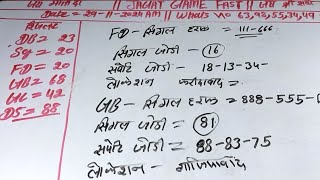 SINGAL GAME FAST
Date = 29-11-2025 AM || Whats no 63,93,55,34,49
DB = 23
SG = 20
FD = 20
GB = 68
GL = 42
DS = 88
FD - सिंगल हरूफ = 111-666
सिंगल जोडी - 16
सपोर्ट जोडी - 18-13-34-
लोकेशन - फरीदाबाद =
GB - सिंगल हरूफ = 888-555-
सिंगल जोडी = 81
सपोर्ट जोडी = 88-83-75
लोकेशन - गाजियाबाद